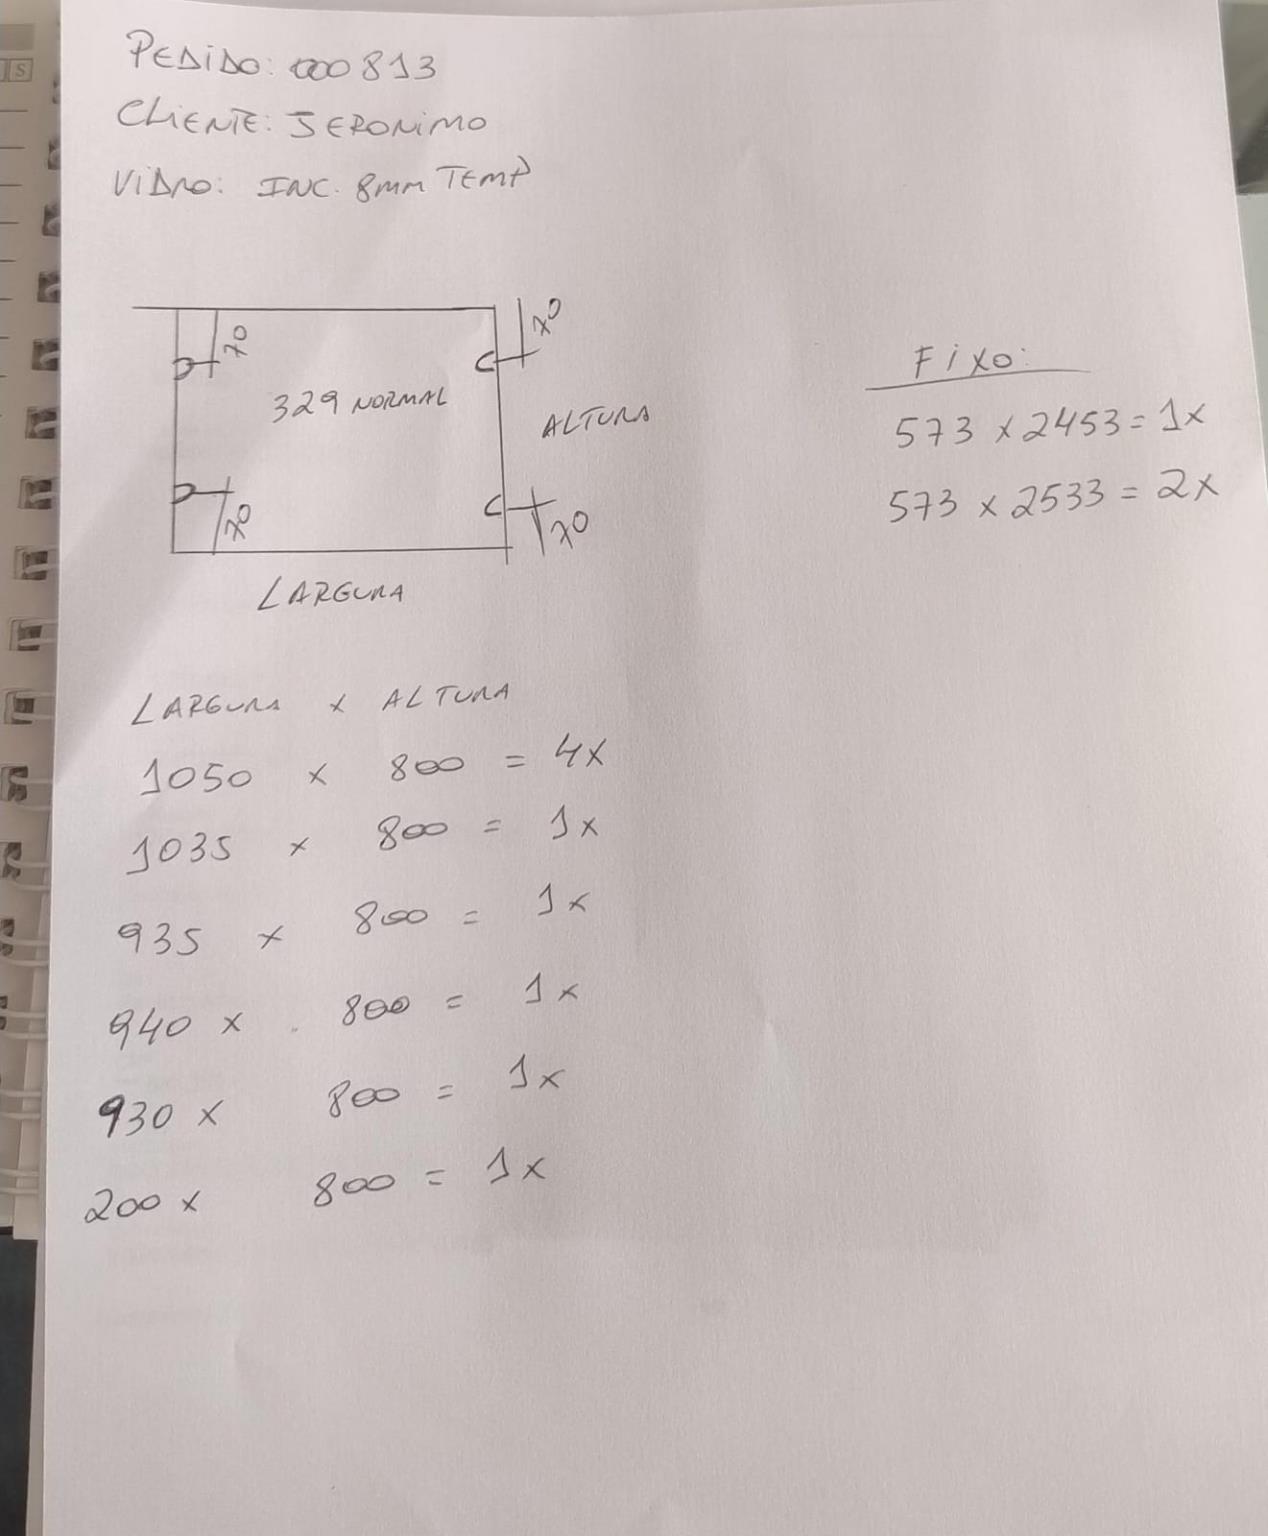 PEDIDO: 000813
CLIENTE: JERONIMO
VIDRO: INC. 8MM TEMP
70
70
329 NORMAL
ALTURA
70
70
LARGURA
FIXO:
573 x 2453 = 1x
573 x 2533 = 2x
LARGURA x ALTURA
1050 x 800 = 4x
1035 x 800 = 1x
935 x 800 = 1x
940 x 800 = 1x
930 x 800 = 1x
200 x 800 = 1x
S